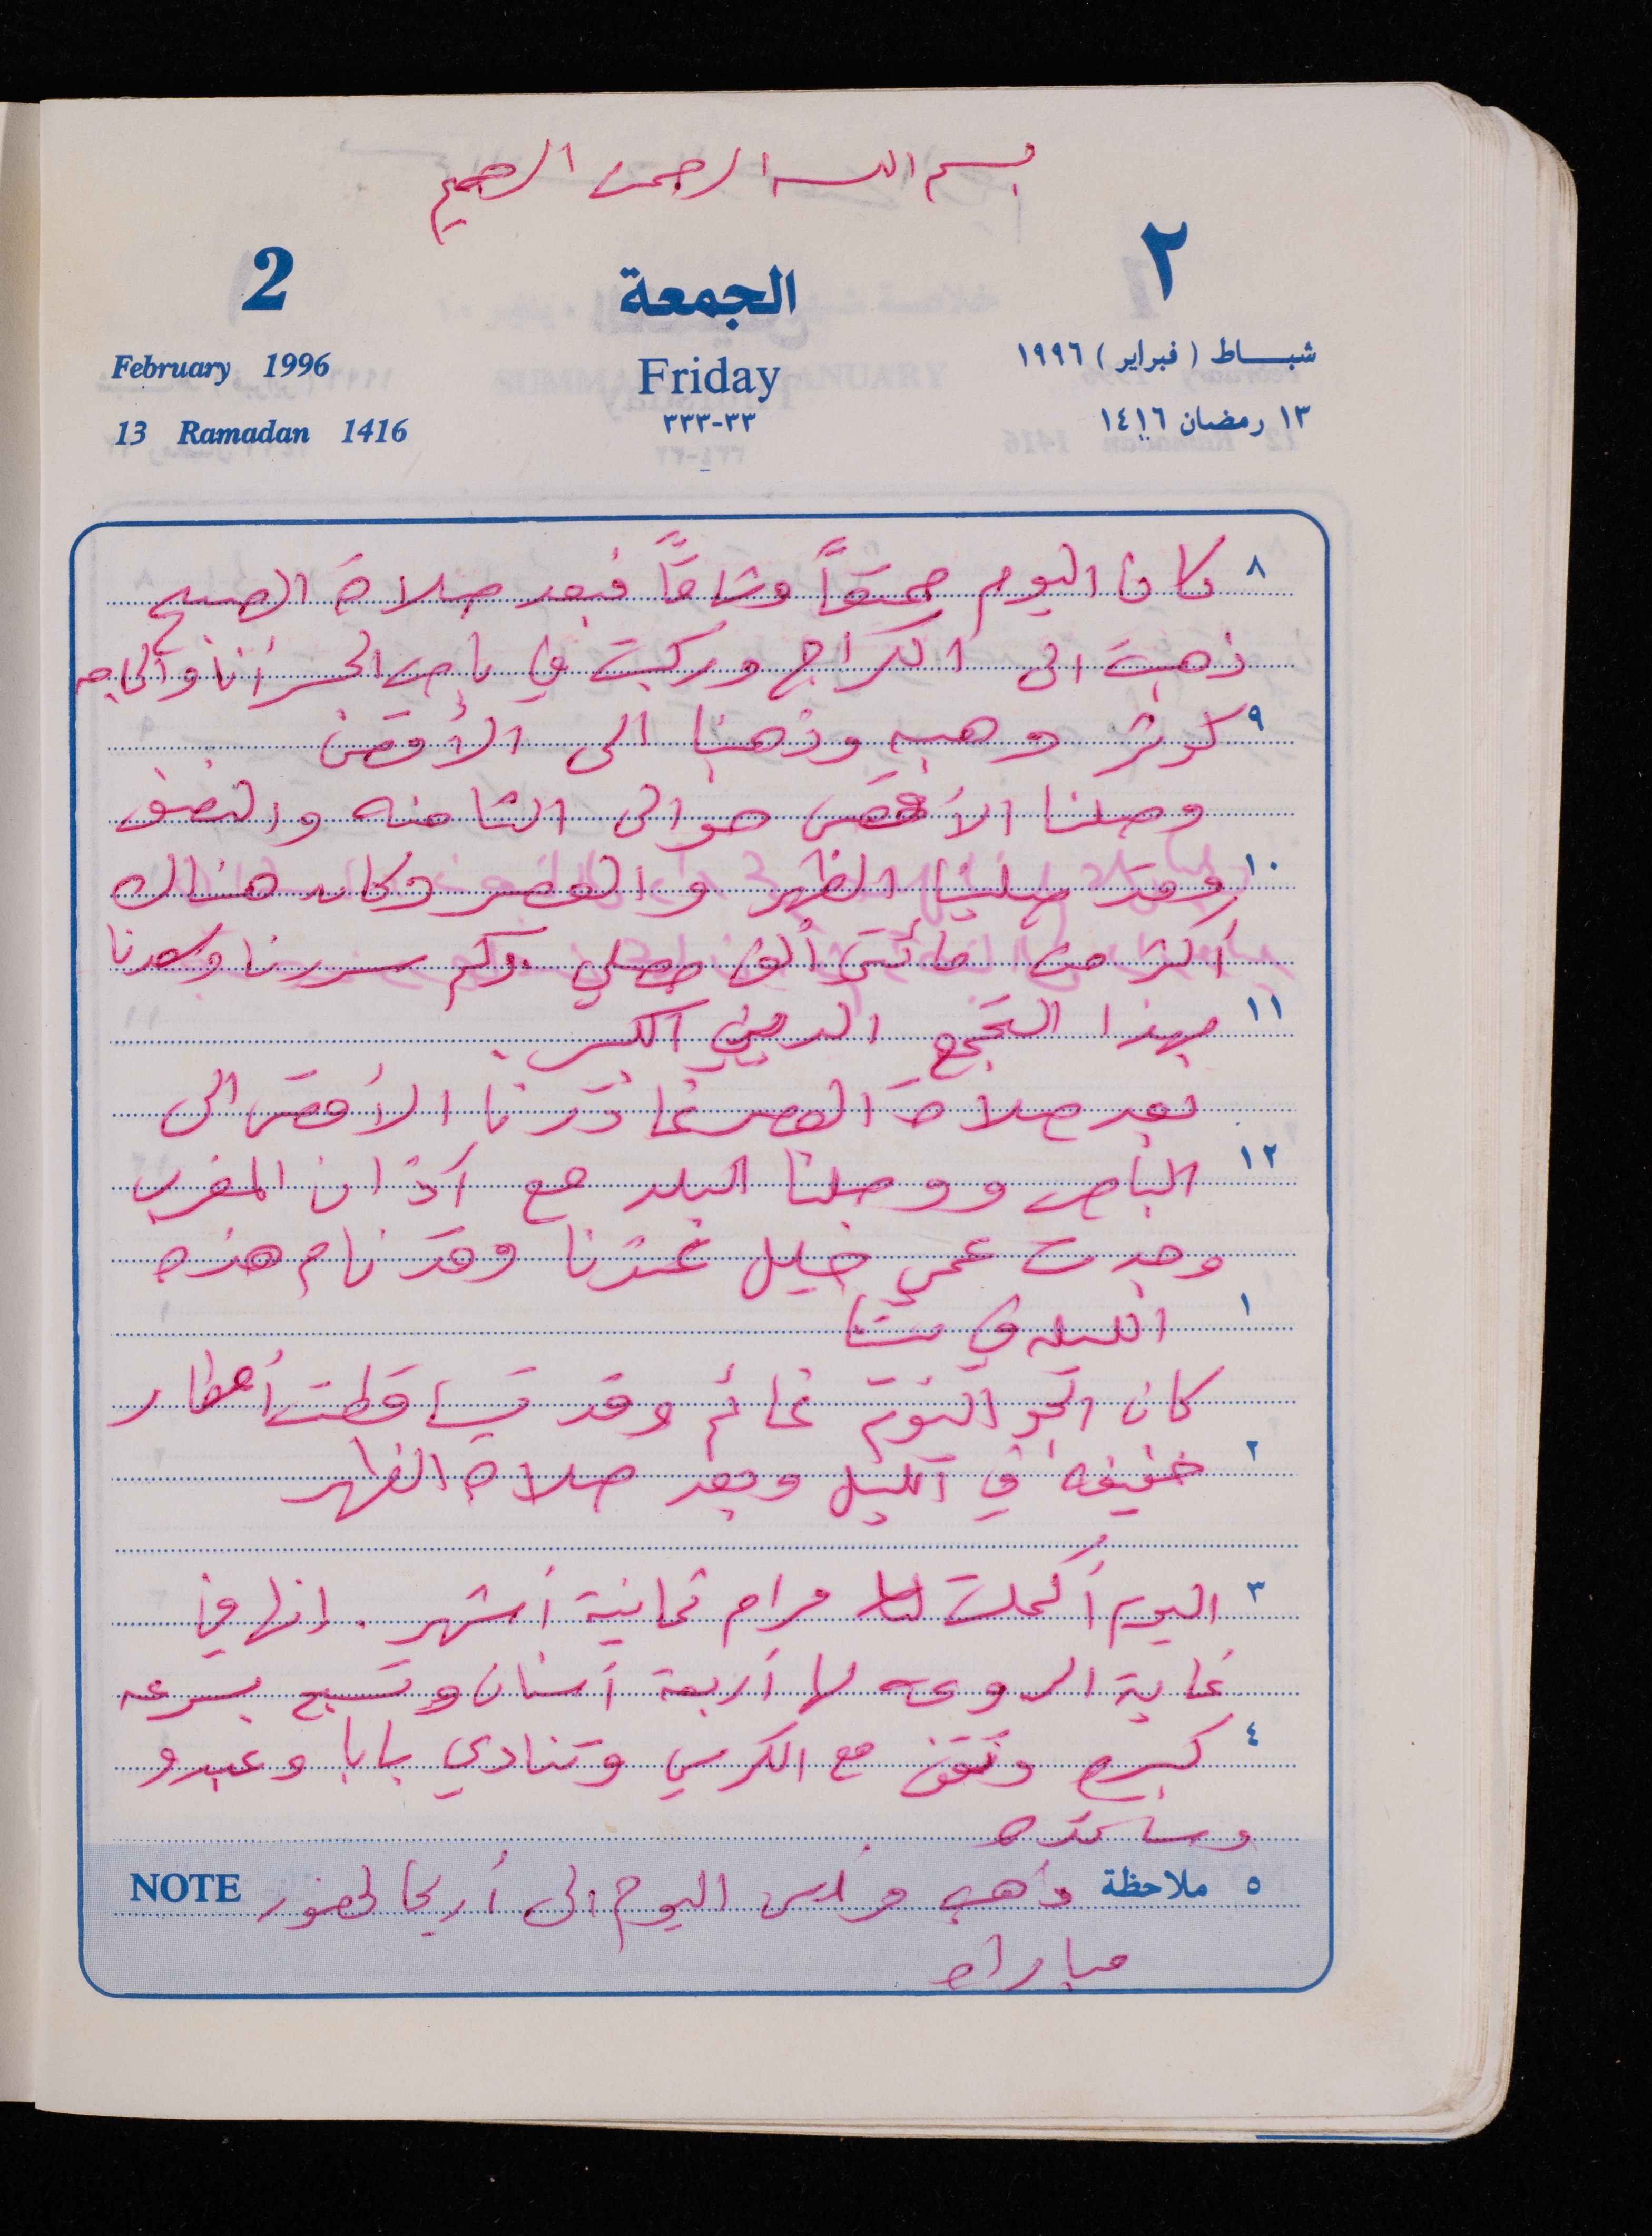 بسم الله الرحمن الرحيم
2 الجمعة ٢
February 1996 Friday شبـــاط ( فبراير ) ١٩٩٦
13 Ramadan 1416 ٣٣-٣٣٣ ١٣ رمضان ١٤١٦
٨ كان اليوم ممتعاً وشاقاً فبعد صلاة الصبح
ذهبت الى الكراج وركبت في باص الجسر أنا والحاجه
٩ كوثر وهبه وذهبنا الى الأقصى
وصلنا الأقصى حوالى الثامنه والنصف
١٠ وقد صلينا الظهر والعصر وكان هناك
أكثر من مائتي ألف مصلي وكم سررنا وسعدنا
١١ بهذا التجمع الديني الكبير.
بعد صلاة العصر غادرنا الأقصى الى
١٢ الباص ووصلنا البلد مع آذان المغرب
وجدت عمي خليل عندنا وقد نام هذه
١ الليله في بيتنا
كان الجو اليوم غائم وقد تساقطت أمطار
٢ خفيفه في الليل وبعد صلاة الظهر
٣ اليوم أكملت مرام ثمانية أشهر. انها في
غاية الروعه لها أربعة أسنان وتسبح بسرعه
٤ كبيره وتقف مع الكرسي وتنادي بابا وعبدو
وسا
٥ ملاحظة اليوم الى أريحا لحضور NOTE
مباراه